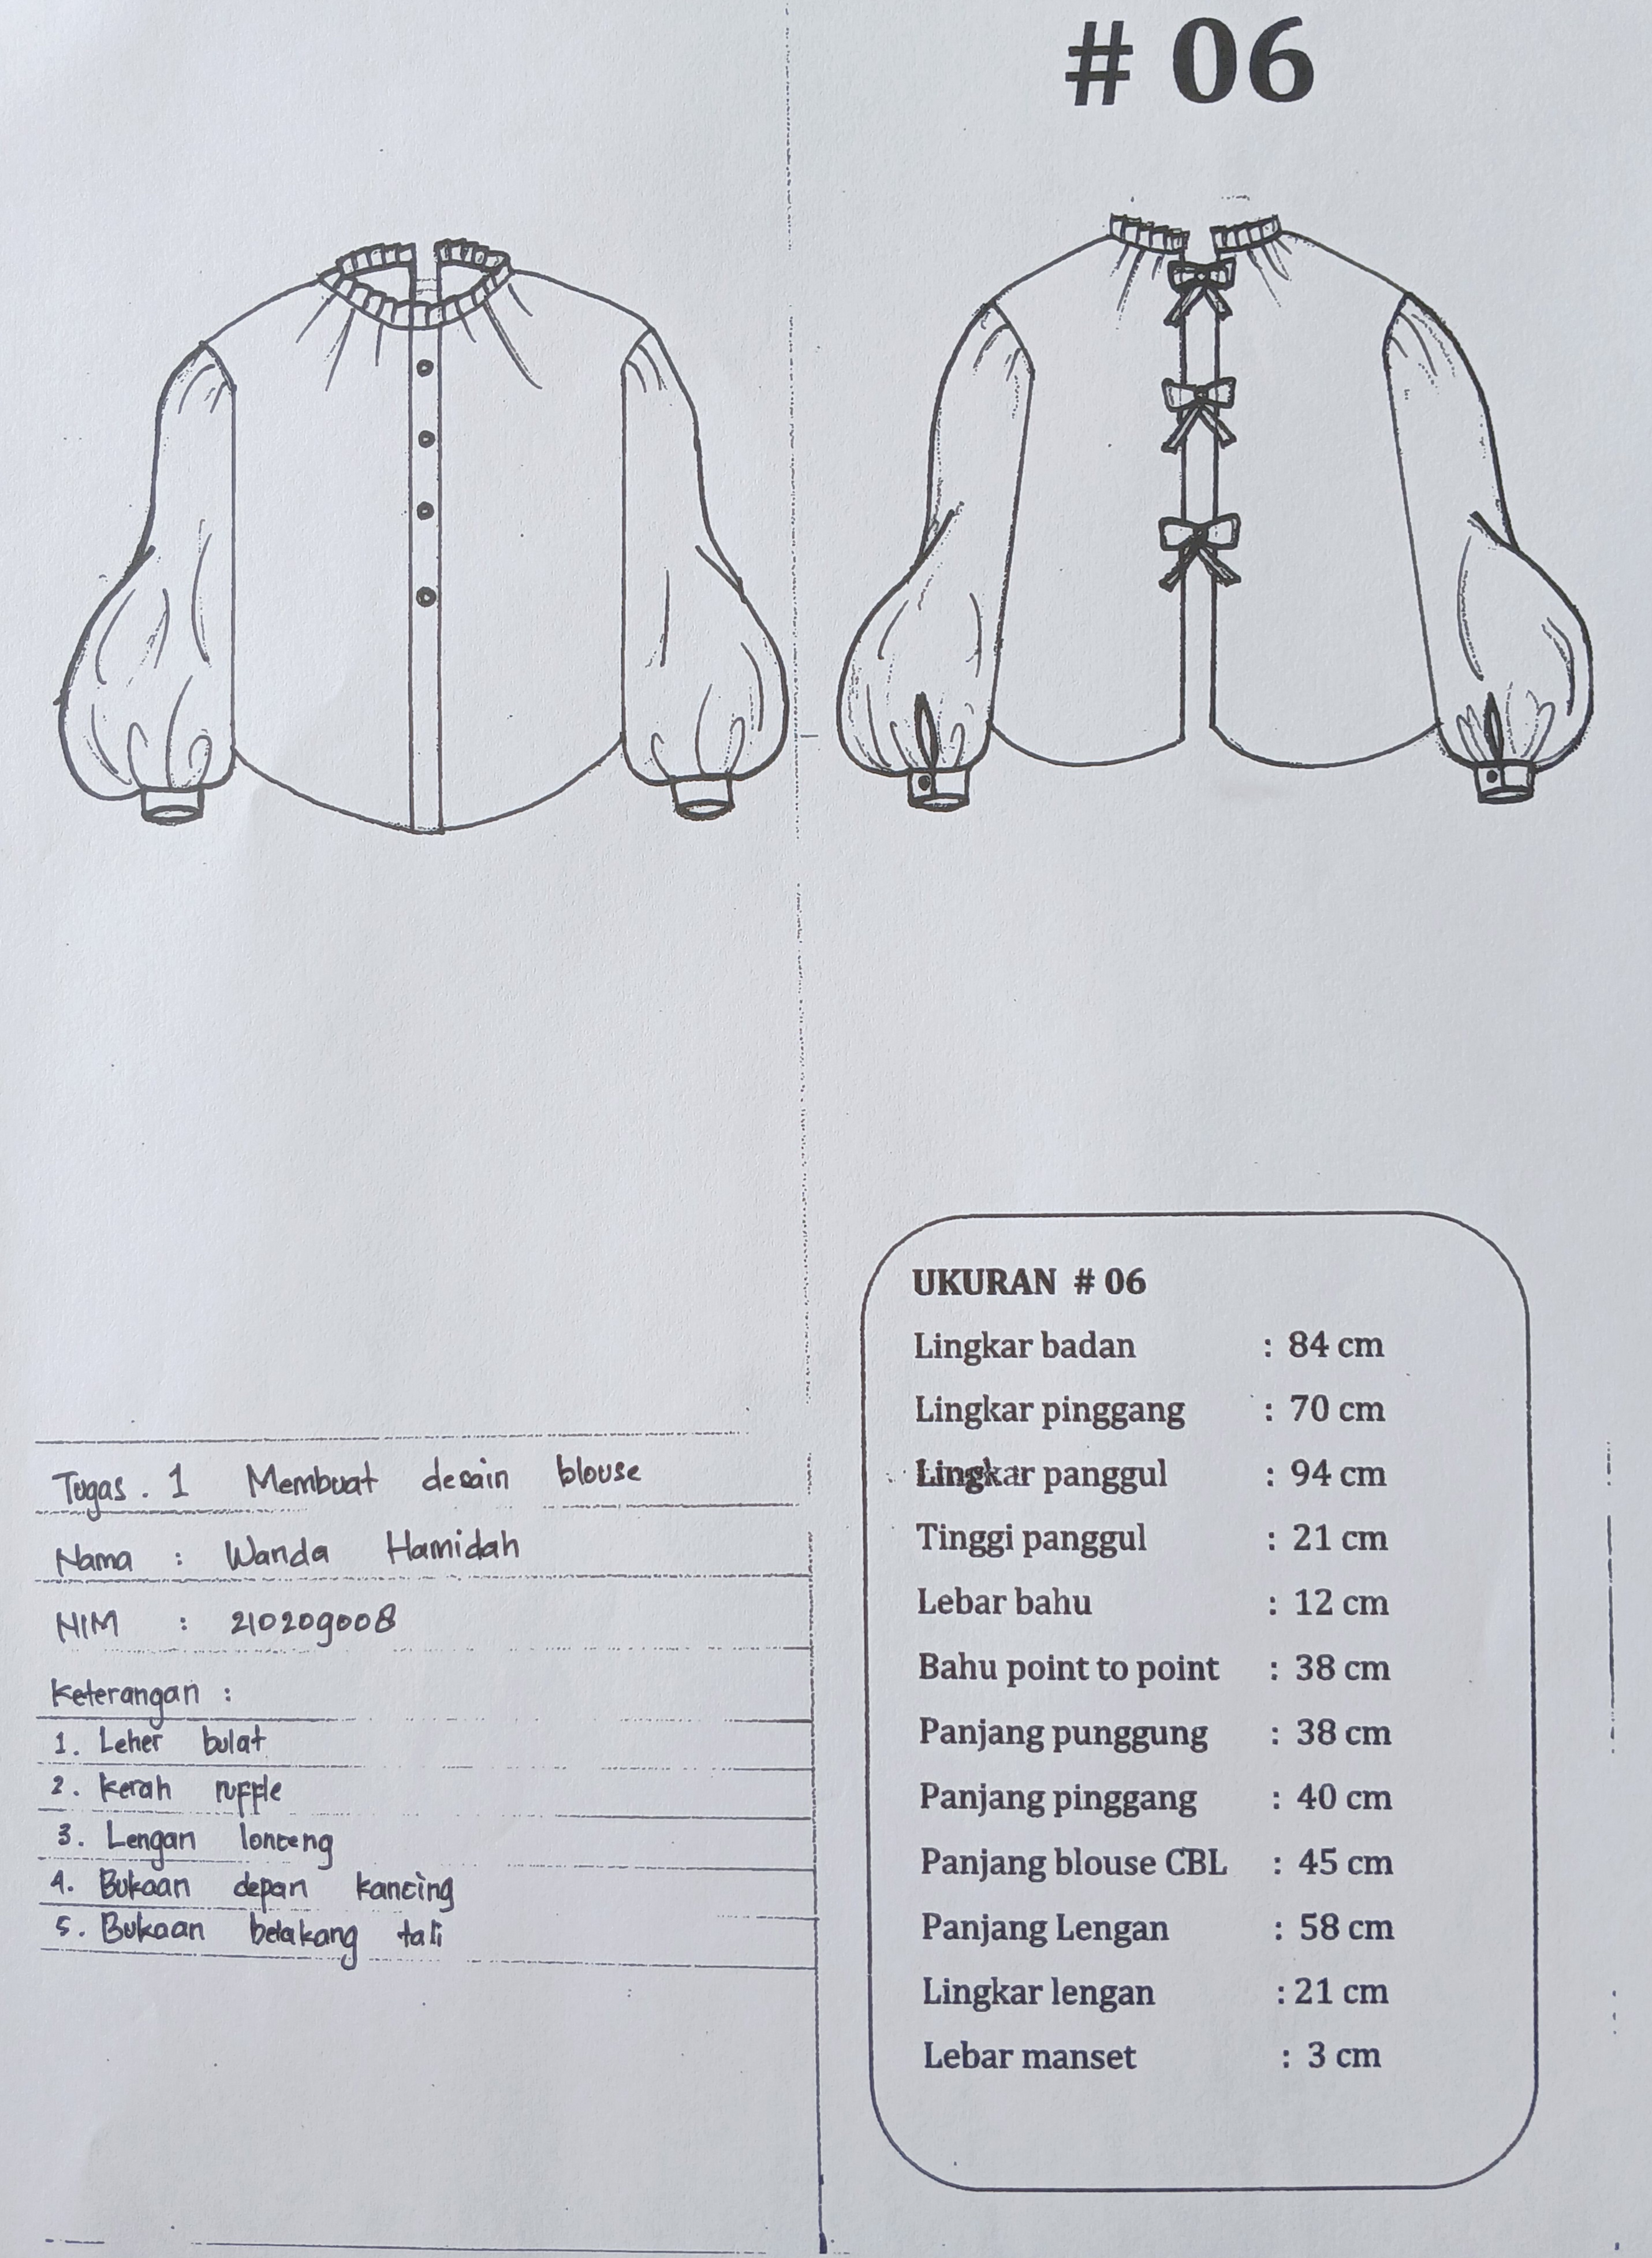 # 06
Tugas . 1 Membuat desain blouse
Nama : Wanda Hamidah
NIM : 210209008
Keterangan :
1. Leher bulat
2. Kerah ruffle
3. Lengan lonceng
4. Bukaan depan kancing
5. Bukaan belakang tali
UKURAN # 06
Lingkar badan : 84 cm
Lingkar pinggang : 70 cm
Lingkar panggul : 94 cm
Tinggi panggul : 21 cm
Lebar bahu : 12 cm
Bahu point to point : 38 cm
Panjang punggung : 38 cm
Panjang pinggang : 40 cm
Panjang blouse CBL : 45 cm
Panjang Lengan : 58 cm
Lingkar lengan : 21 cm
Lebar manset : 3 cm